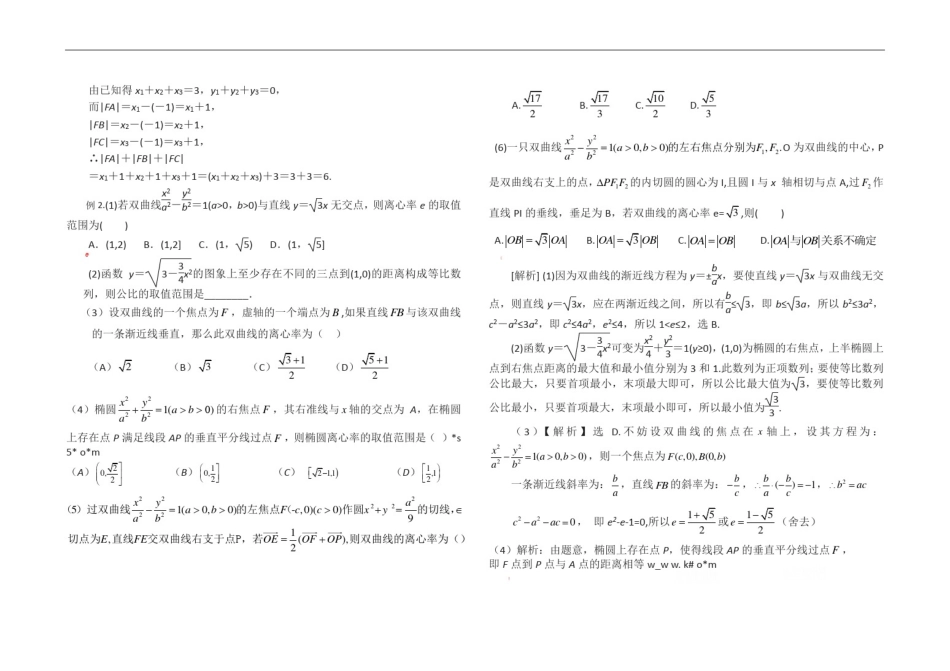 由已知得 x₁+x₂+x₃=3，y₁+y₂+y₃=0，
而|FA|=x₁-(-1)=x₁+1，
|FB|=x₂-(-1)=x₂+1，
|FC|=x₃-(-1)=x₃+1，
∴|FA|+|FB|+|FC|
=x₁+1+x₂+1+x₃+1=(x₁+x₂+x₃)+3=3+3=6.
例 2.(1)若双曲线x²/a²-y²/b²=1(a>0，b>0)与直线 y=√3x 无交点，则离心率 e 的取值
范围为( )
A．(1,2) B．(1,2] C．(1，√5) D．(1，√5]
e
(2)函数 y=√(3-3/4x²)的图象上至少存在不同的三点到(1,0)的距离构成等比数
列，则公比的取值范围是________.
（3）设双曲线的一个焦点为F，虚轴的一个端点为B,如果直线FB与该双曲线
的一条渐近线垂直，那么此双曲线的离心率为（ ）
（A）√2 （B）√3 （C）(√3+1)/2 （D）(√5+1)/2
（4）椭圆x²/a²+y²/b²=1(a>b>0)的右焦点F，其右准线与x轴的交点为 A，在椭圆
上存在点 P 满足线段 AP 的垂直平分线过点F，则椭圆离心率的取值范围是（ ）*s
5* o*m
（A）(0,√2/2] （B）(0,1/2] （C）[√2-1,1) （D）[1/2,1)
(5）过双曲线x²/a²-y²/b²=1(a>0,b>0)的左焦点F(-c,0)(c>0)作圆x²+y²=a²/9的切线,∈
切点为E,直线FE交双曲线右支于点P，若OE=1/2(OF+OP),则双曲线的离心率为（）
A.√17/2 B.√17/3 C.√10/2 D.√5/3
(6)一只双曲线x²/a²-y²/b²=1(a>0,b>0)的左右焦点分别为F₁,F₂.O 为双曲线的中心，P
是双曲线右支上的点，ΔPF₁F₂的内切圆的圆心为 I,且圆 I 与 x 轴相切与点 A,过F₂作
直线 PI 的垂线，垂足为 B，若双曲线的离心率 e=√3,则( )
A.|OB|=√3|OA| B.|OA|=√3|OB| C.|OA|=|OB| D.|OA|与|OB|关系不确定
[解析] (1)因为双曲线的渐近线方程为 y=±b/a x，要使直线 y=√3x 与双曲线无交
点，则直线 y=√3x，应在两渐近线之间，所以有b/a≤√3，即 b≤√3a，所以 b²≤3a²，
c²-a²≤3a²，即 c²≤4a²，e²≤4，所以 1<e≤2，选 B.
(2)函数 y=√(3-3/4x²)可变为x²/4+y²/3=1(y≥0)，(1,0)为椭圆的右焦点，上半椭圆上
点到右焦点距离的最大值和最小值分别为 3 和 1.此数列为正项数列；要使等比数列
公比最大，只要首项最小，末项最大即可，所以公比最大值为√3，要使等比数列
公比最小，只要首项最大，末项最小即可，所以最小值为√3/3.
（3）【解析】选 D.不妨设双曲线的焦点在x轴上，设其方程为：
x²/a²-y²/b²=1(a>0,b>0)，则一个焦点为F(c,0),B(0,b)
一条渐近线斜率为：b/a，直线FB的斜率为：-b/c，∴b/a·(-b/c)=-1，∴b²=ac
c²-a²-ac=0， 即 e²-e-1=0,所以e=(1+√5)/2或e=(1-√5)/2（舍去）
（4）解析：由题意，椭圆上存在点 P，使得线段 AP 的垂直平分线过点F，
即 F 点到 P 点与 A 点的距离相等 w_w w. k# o*m